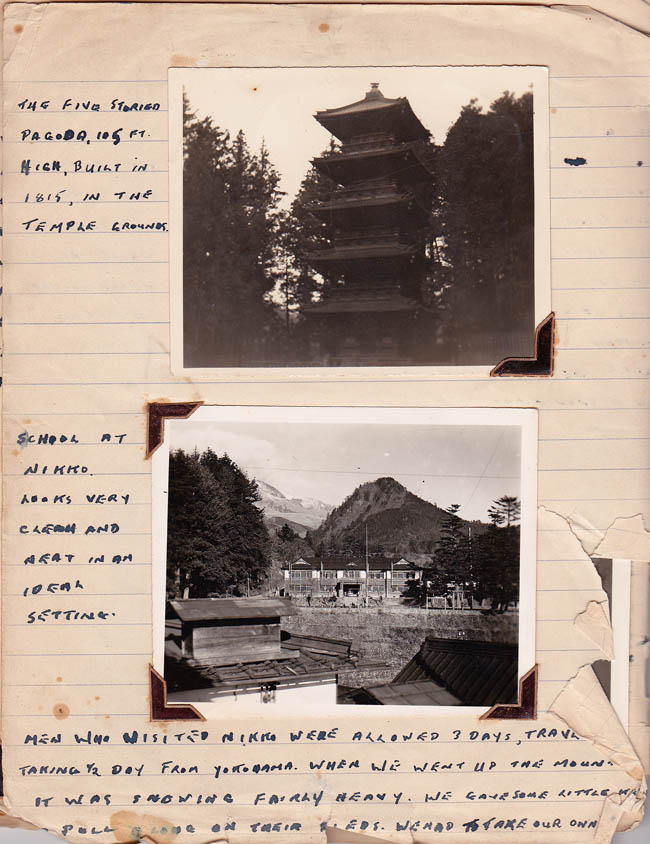 THE FIVE STORIED
PAGODA, 105 FT.
HIGH, BUILT IN
1815, IN THE
TEMPLE GROUNDS.
SCHOOL AT
NIKKO.
LOOKS VERY
CLEAN AND
NEAT IN AN
IDEAL
SETTING.
MEN WHO VISITED NIKKO WERE ALLOWED 3 DAYS, TRAVE
TAKING ½ DAY FROM YOKOHAMA. WHEN WE WENT UP THE MOUN
IT WAS SNOWING FAIRLY HEAVY. WE GAVE SOME LITTLE
PULL ALONG ON THEIR SLEDS. WE HAD TO TAKE OUR OWN